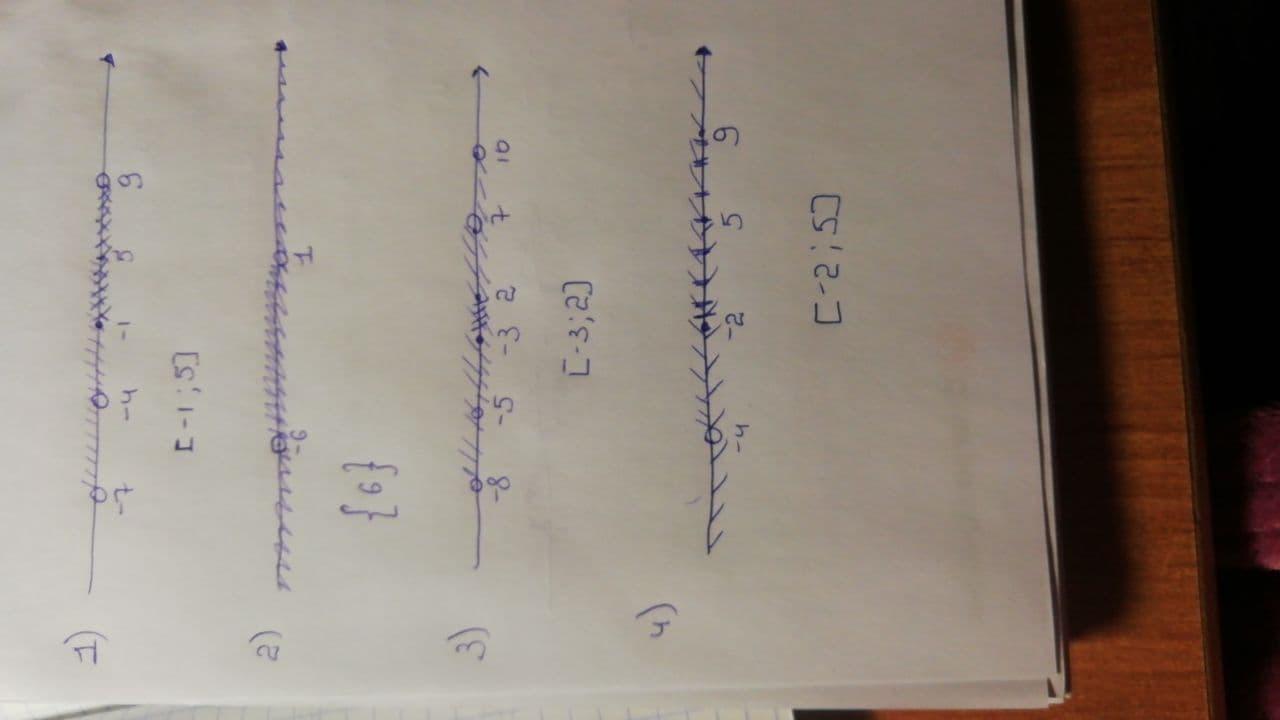 1)
-7 -4 -1 5 9
[-1;5]
2)
-6 1
{6}
3)
-8 -5 -3 2 7 10
[-3;2]
4)
-4 -2 5 9
[-2;5]